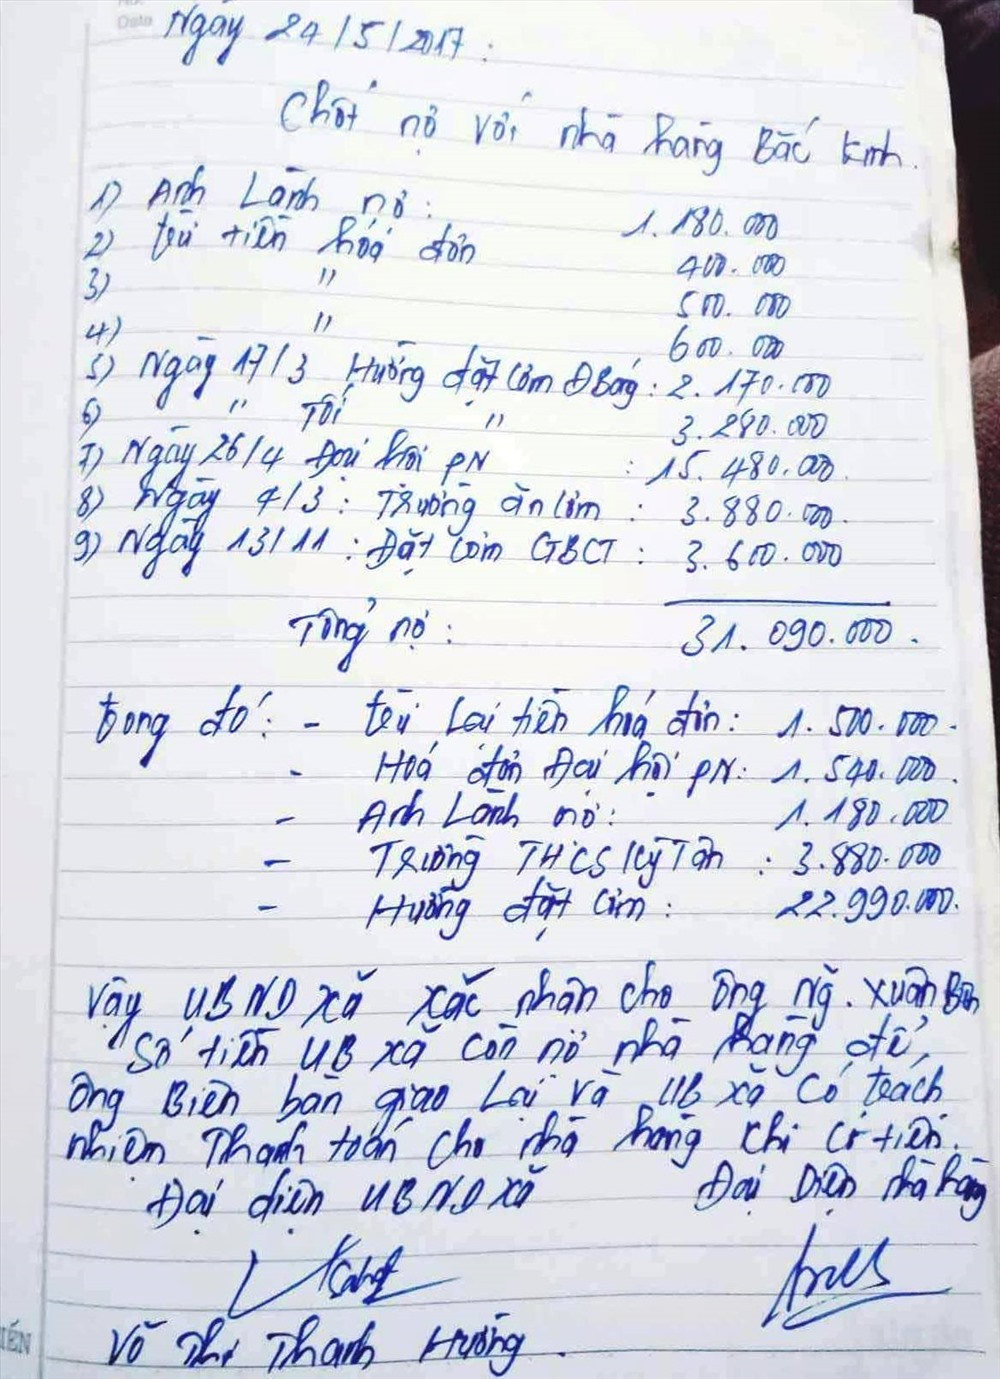 Date
Ngày 24/5/2017:
Chốt nợ với nhà hàng Bắc Kinh.
1) Anh Lành nợ: 1.180.000
2) trừ tiền hóa đơn 400.000
3) " 500.000
4) " 600.000
5) Ngày 17/3 Hường đặt cơm Đ Bóng: 2.170.000
6) " Tối " 3.280.000
7) Ngày 26/4 Đại hội PN : 15.480.000
8) Ngày 4/3: Trường ăn cơm : 3.880.000.
9) Ngày 13/11: Đặt cơm GBCT: 3.600.000
Tổng nợ: 31.090.000.
trong đó: - trừ lại tiền hoá đơn: 1.500.000.
- Hoá đơn Đại hội PN: 1.540.000.
- Anh Lành nợ: 1.180.000
- Trường THCS Kỳ Tân : 3.880.000
- Hường đặt cơm: 22.990.000.
Vậy UBND xã xác nhận cho ông Ng. Xuân Biên
Số tiền UB xã còn nợ nhà hàng để,
ông Biên bàn giao lại và UB xã có trách
nhiệm Thanh toán cho nhà hàng khi có tiền.
Đại diện UBND xã Đại Diện nhà hàng
Võ Thị Thanh Hường.